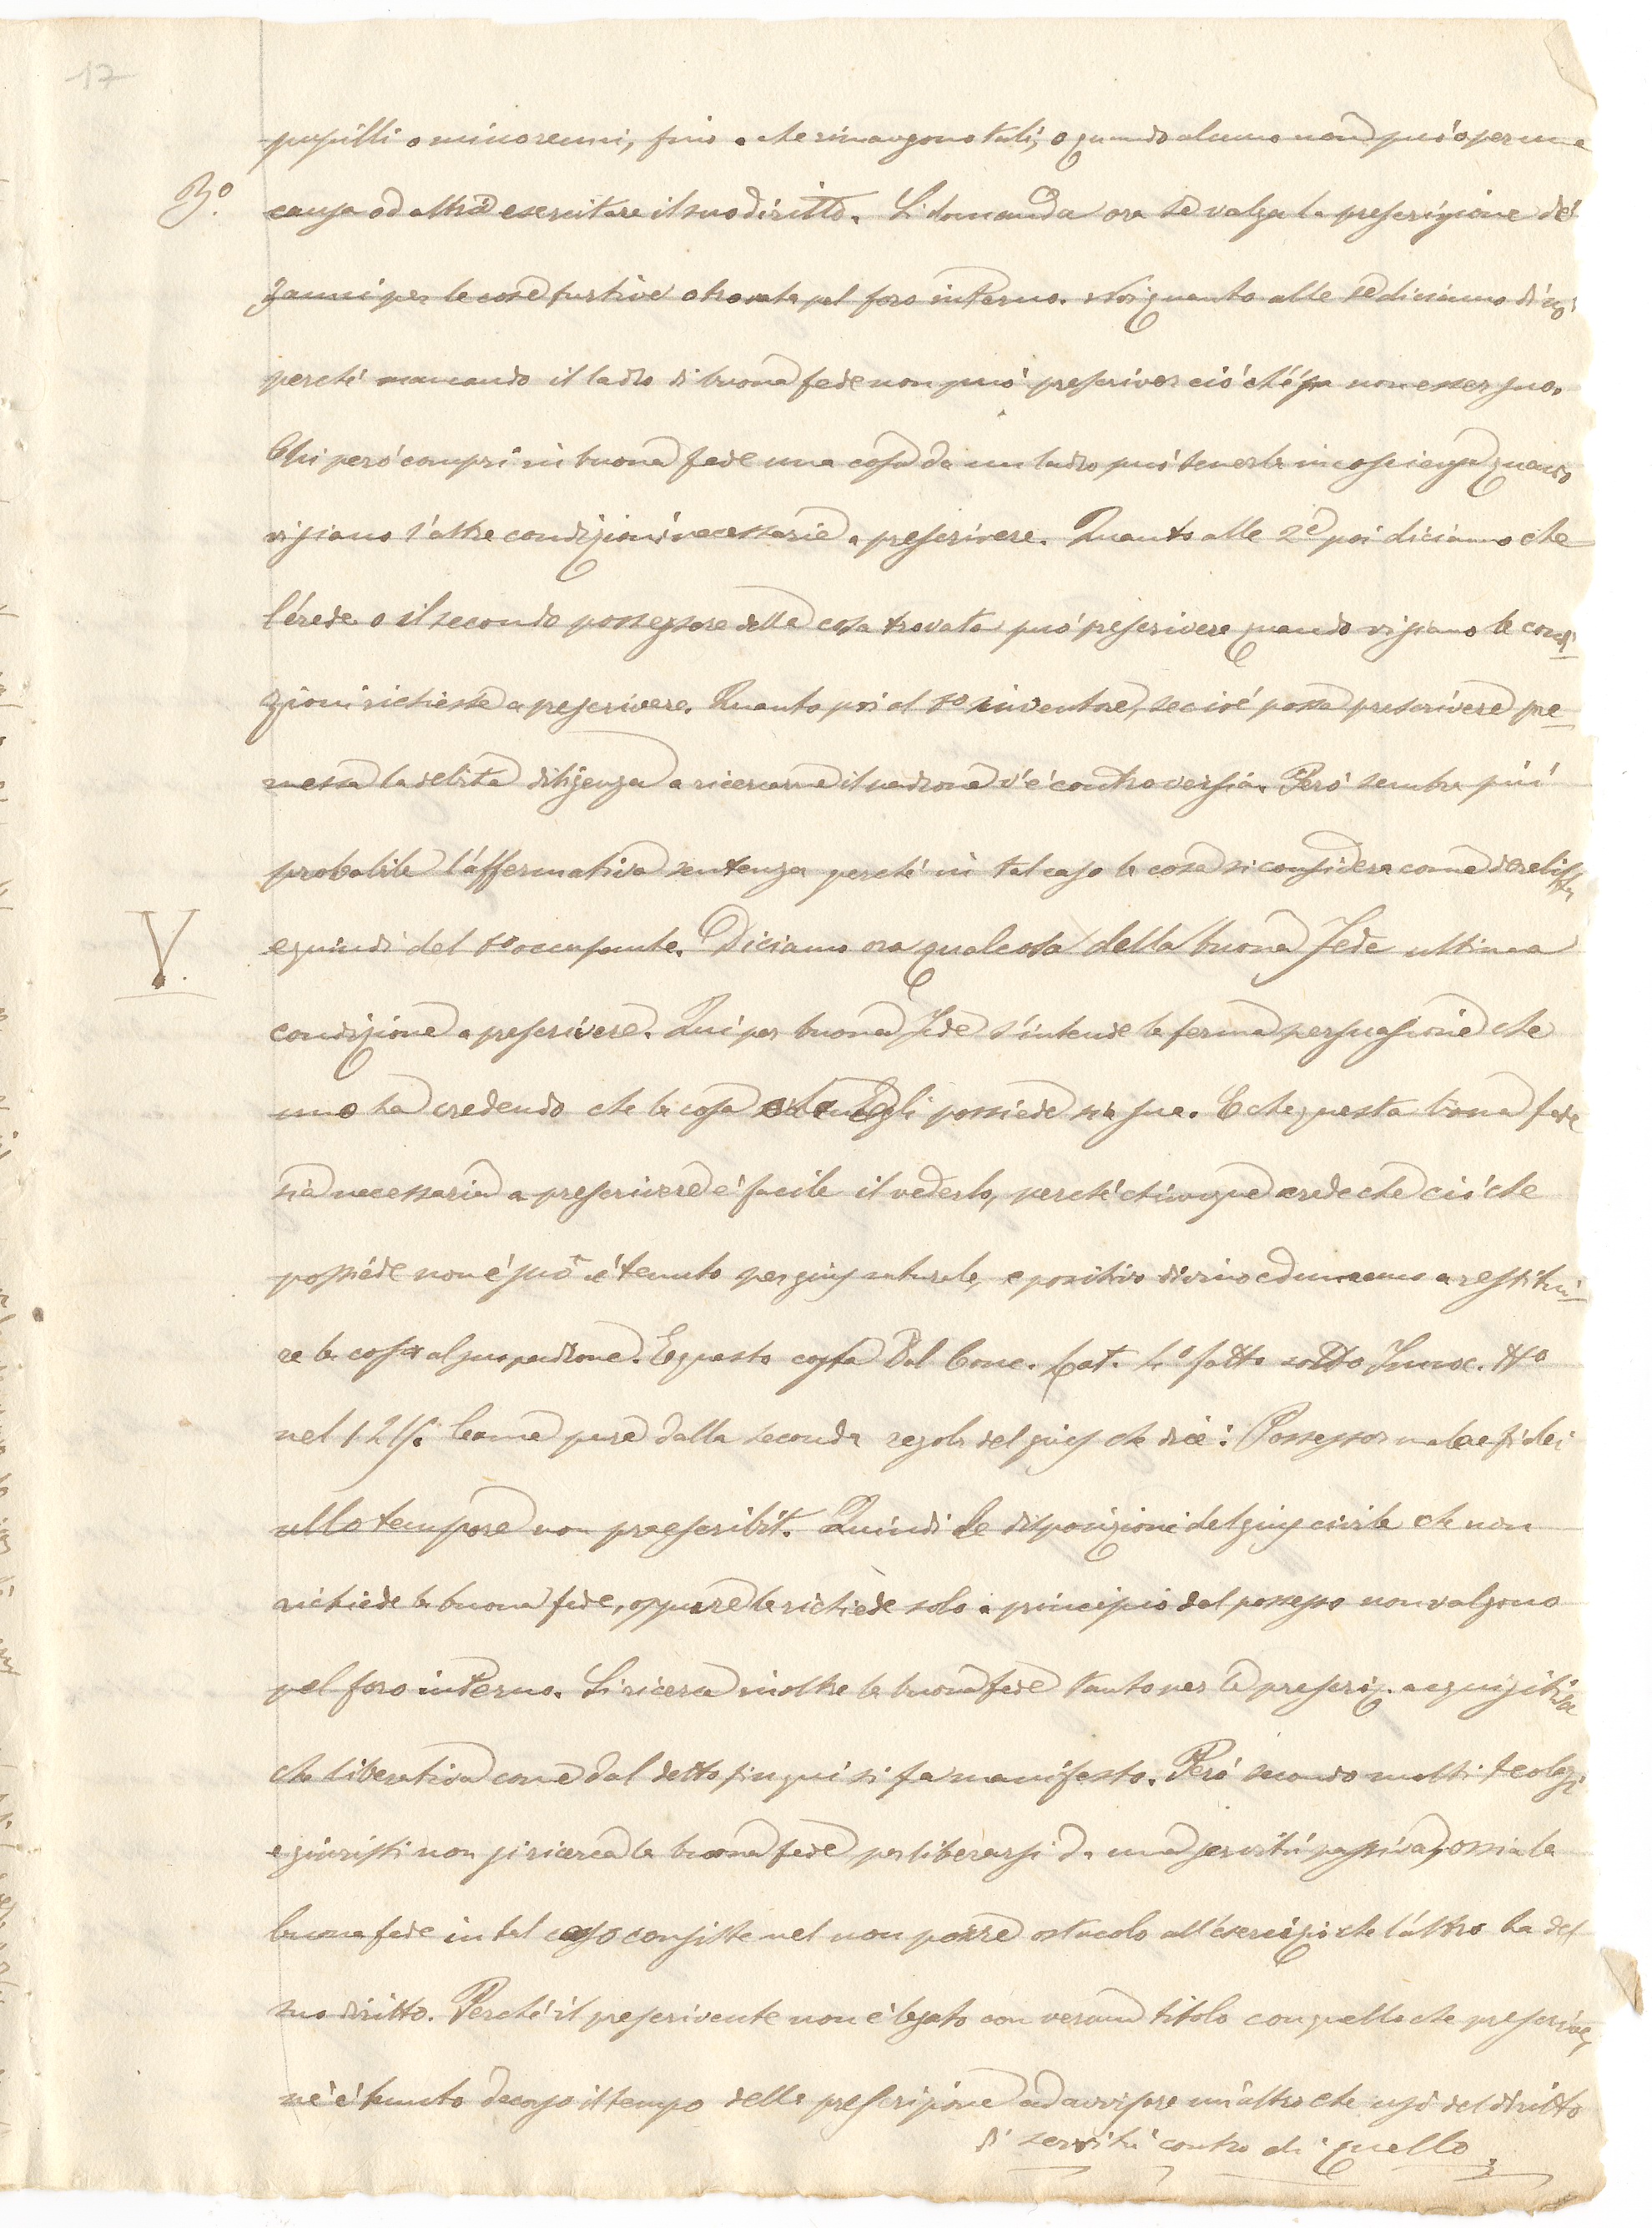 17
pupilli o minorenni, fino a che rimangono tali, o quando alcuno non può per una
3º. causa od altra esercitare il suo diritto. Si domanda ora se valga la prescrizione de'
3 anni per le cose furtive o trovate pel foro interno. Noi quanto alle 1e diciamo di no;
perché mancando il ladro di buona fede non può prescriver ciò ché sa non esser suo.
Chi però compri in buona fede una cosa da un ladro può tenerla in coscienza quando
vi siano l'altre condizioni necessarie a prescrivere. Quanto alle 2e poi diciamo che
l'erede o il secondo possessore della cosa trovata può prescrivere quando vi siano le condi
zioni richieste a prescrivere. Quanto poi al 1º inventore, se cioé possa prescrivere pre
messa la debita diligenza a ricercarne il padrone v'é controversia. Però sembra più
probabile l'affermativa sentenza perché in tal caso la cosa si considera come derelitta
V. e quindi del 1º occupante. Diciamo ora qualcosa della buona Fede ultima
condizione a prescrivere. Qui per buona Fede s'intende la ferma persuasione che
uno ha credendo che la cosa egli possiede sia sua. E che questa buona fede
sia necessaria a prescrivere é facile il vederlo, perché chiunque crede che ciò che
possiede non é suo é tenuto per gius naturale, e positivo divino ed umano a restitui
re la cosa al suo padrone. E questo costa Dal Conc. Lat. 4º fatto sotto Innoc. IIIº
nel 1215. Come pure dalla seconda regola del gius che dice: Possessor malae fidei
ullo tempore non praescribit. Quindi le disposizioni del gius civile che non
richiede la buona fede, oppure la richiede solo a principio del possesso non valgono
pel foro interno. Si ricerca inoltre la buona fede tanto per la prescriz. acquisitiva
che liberativa come dal detto fin qui si fa manifesto. Però secondo molti teologi
e giuristi non si ricerca la buona fede per liberarsi da una servitù passiva, ossia la
buona fede in tal caso consiste nel non porre ostacolo all'esercizio che l'altro ha del
suo diritto. Perché il prescrivente non é legato con verun titolo con quello che prescrive,
né é tenuto decorso il tempo della prescrizione ad avvisare un altro che usi del diritto
di servitù contro di quello